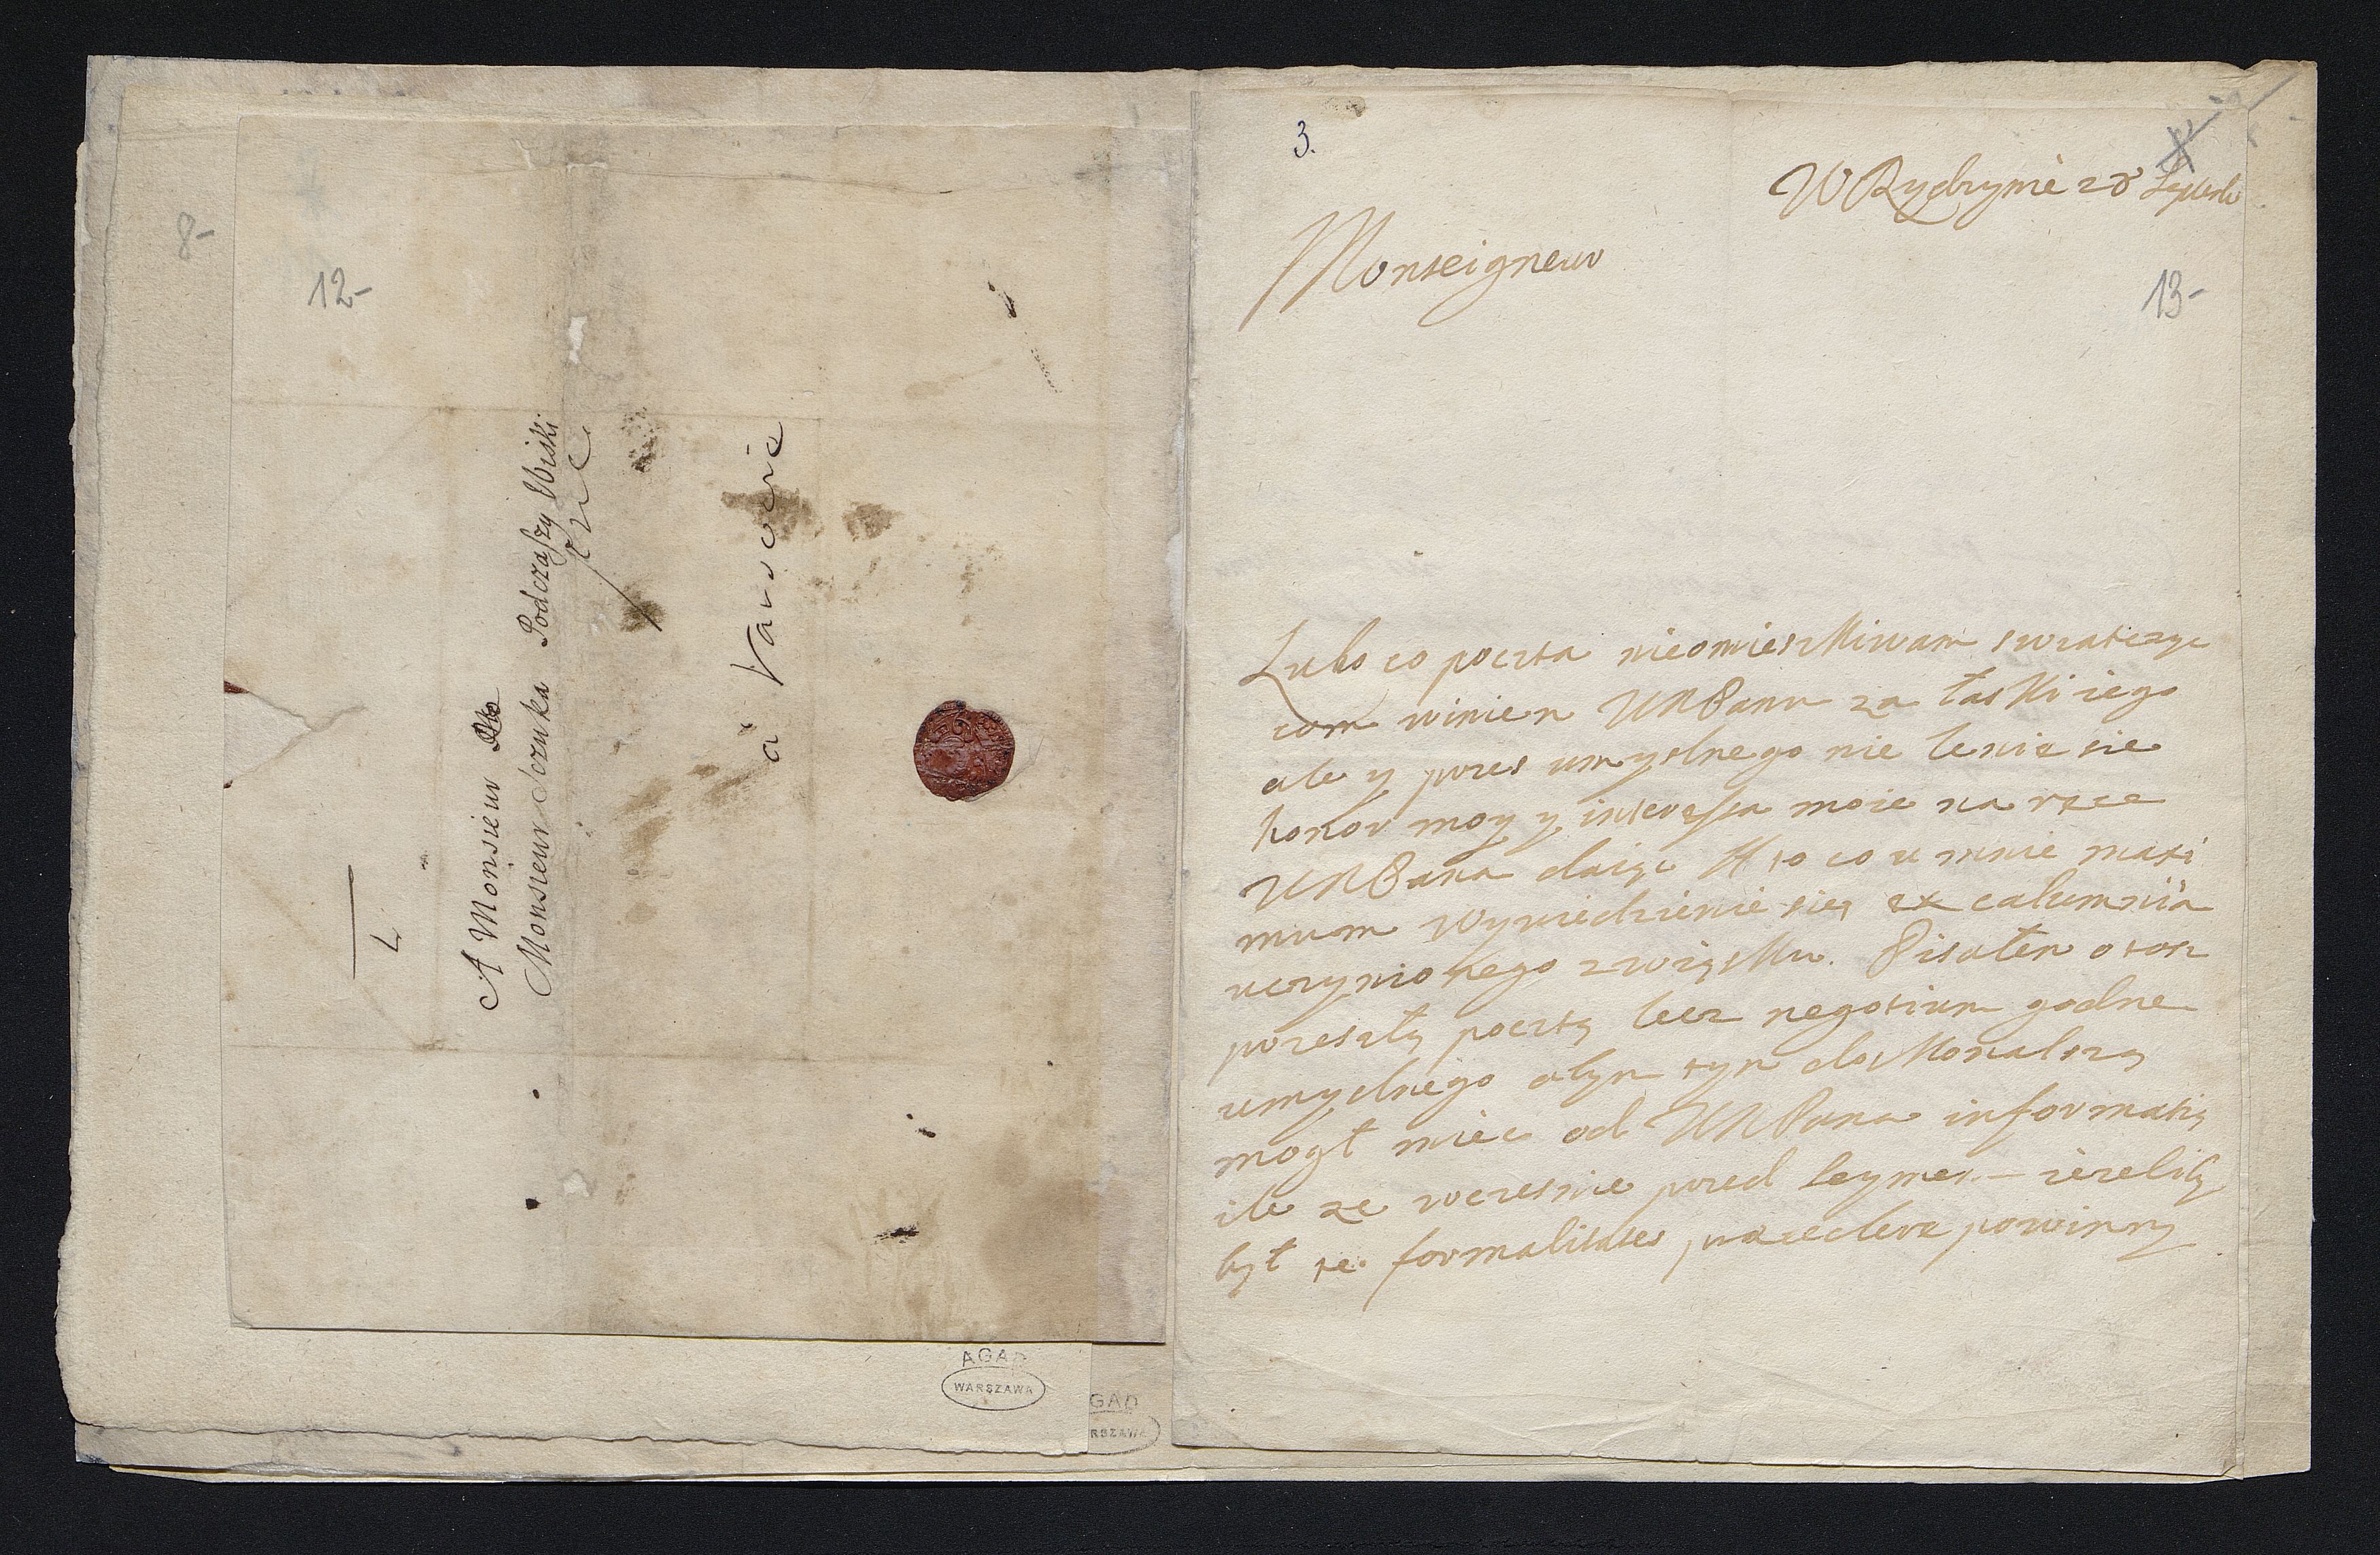 8-
12-
A Monsieur
Monsieur Sczuka Podczaszy Wiski
à Varsovie
L
AGAD
WARSZAWA
GAD
RSZAWA
3.
W Rydzynie 28 Septemb
Monseigneur
13-
Lubo co poczta nieomieszkiwam swiatczyc
com winien WMPanu za łaski iego
ale y przes umyslnego nie lenie sie
honor moy y interessa moie na rece
WMPana daiąc to co u mnie maxi
mum wywiedzienie się ex calumnia
uczynionego związku. Pisałem otosz
przeszłą pocztą lecz negotium godne
umyslnego abym tym doskonalszą
mogł miec od WMPana informatią
ile ze wczesnie przed seymem – iezeliby
był te formalitates praecedere powinny